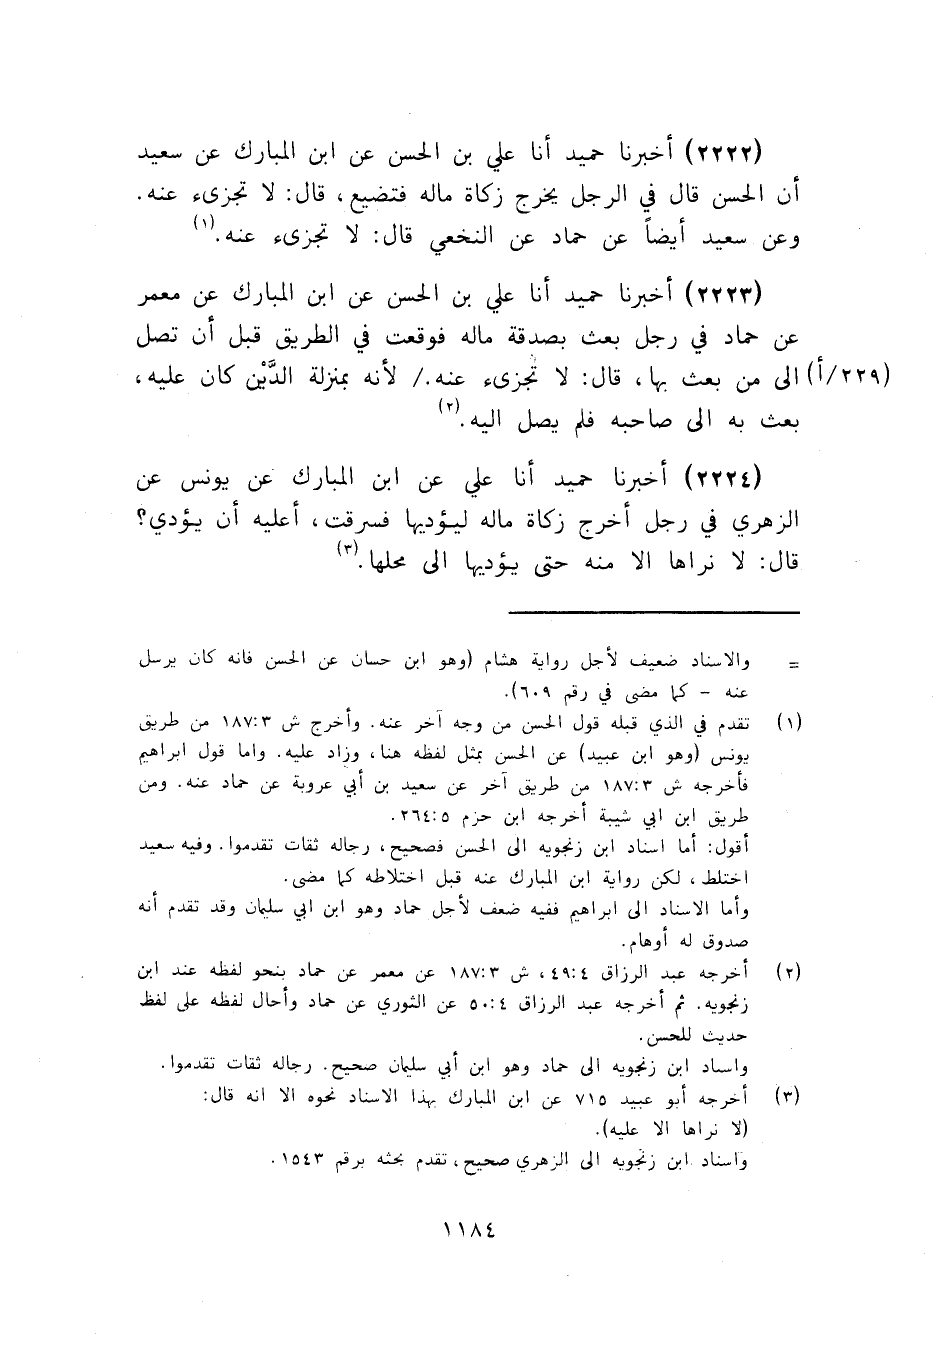 (٢٢٢٢) أخبرنا حميد أنا علي بن الحسن عن ابن المبارك عن سعيد
أن الحسن قال في الرجل يخرج زكاة ماله فتضيع، قال: لا تجزىء عنه.
وعن سعيد أيضاً عن حماد عن النخعي قال: لا تجزىء عنه.(١)
(٢٢٢٣) أخبرنا حميد أنا علي بن الحسن عن ابن المبارك عن معمر
عن حماد في رجل بعث بصدقة ماله فوقعت في الطريق قبل أن تصل
(٢٢٩/أ) الى من بعث بها، قال: لا تُجزىء عنه./ لأنه بمنزلة الدَّيْن كان عليه،
بعث به الى صاحبه فلم يصل اليه.(٢)
(٢٢٢٤) أخبرنا حميد أنا علي عن ابن المبارك عن يونس عن
الزهري في رجل أخرج زكاة ماله ليؤديها فسرقت، أعليه أن يؤدي؟
قال: لا نراها الا منه حتى يؤديها الى محلها.(٣)
= والاسناد ضعيف لأجل رواية هشام (وهو ابن حسان عن الحسن فانه كان يرسل
عنه - كما مضى في رقم ٦٠٩).
(١) تقدم في الذي قبله قول الحسن من وجه آخر عنه. وأخرج ش ١٨٧:٣ من طريق
يونس (وهو ابن عبيد) عن الحسن بمثل لفظه هنا، وزاد عليه. واما قول ابراهيم
فأخرجه ش ١٨٧:٣ من طريق آخر عن سعيد بن أبي عروبة عن حماد عنه. ومن
طريق ابن ابي شيبة أخرجه ابن حزم ٢٦٤:٥.
أقول: أما اسناد ابن زنجويه الى الحسن فصحيح، رجاله ثقات تقدموا. وفيه سعيد
اختلط، لكن رواية ابن المبارك عنه قبل اختلاطه كما مضى.
وأما الاسناد الى ابراهيم ففيه ضعف لأجل حماد وهو ابن ابي سليمان وقد تقدم أنه
صدوق له أوهام.
(٢) أخرجه عبد الرزاق ٤٩:٤، ش ١٨٧:٣ عن معمر عن حماد بنحو لفظه عند ابن
زنجويه. ثم أخرجه عبد الرزاق ٥٠:٤ عن الثوري عن حماد وأحال لفظه على لفظ
حديث للحسن.
واسناد ابن زنجويه الى حماد وهو ابن أبي سليمان صحيح. رجاله ثقات تقدموا.
(٣) أخرجه أبو عبيد ٧١٥ عن ابن المبارك بهذا الاسناد نحوه الا انه قال:
(لا نراها الا عليه).
واسناد ابن زنجويه الى الزهري صحيح، تقدم بحثه برقم ١٥٤٣.
١١٨٤